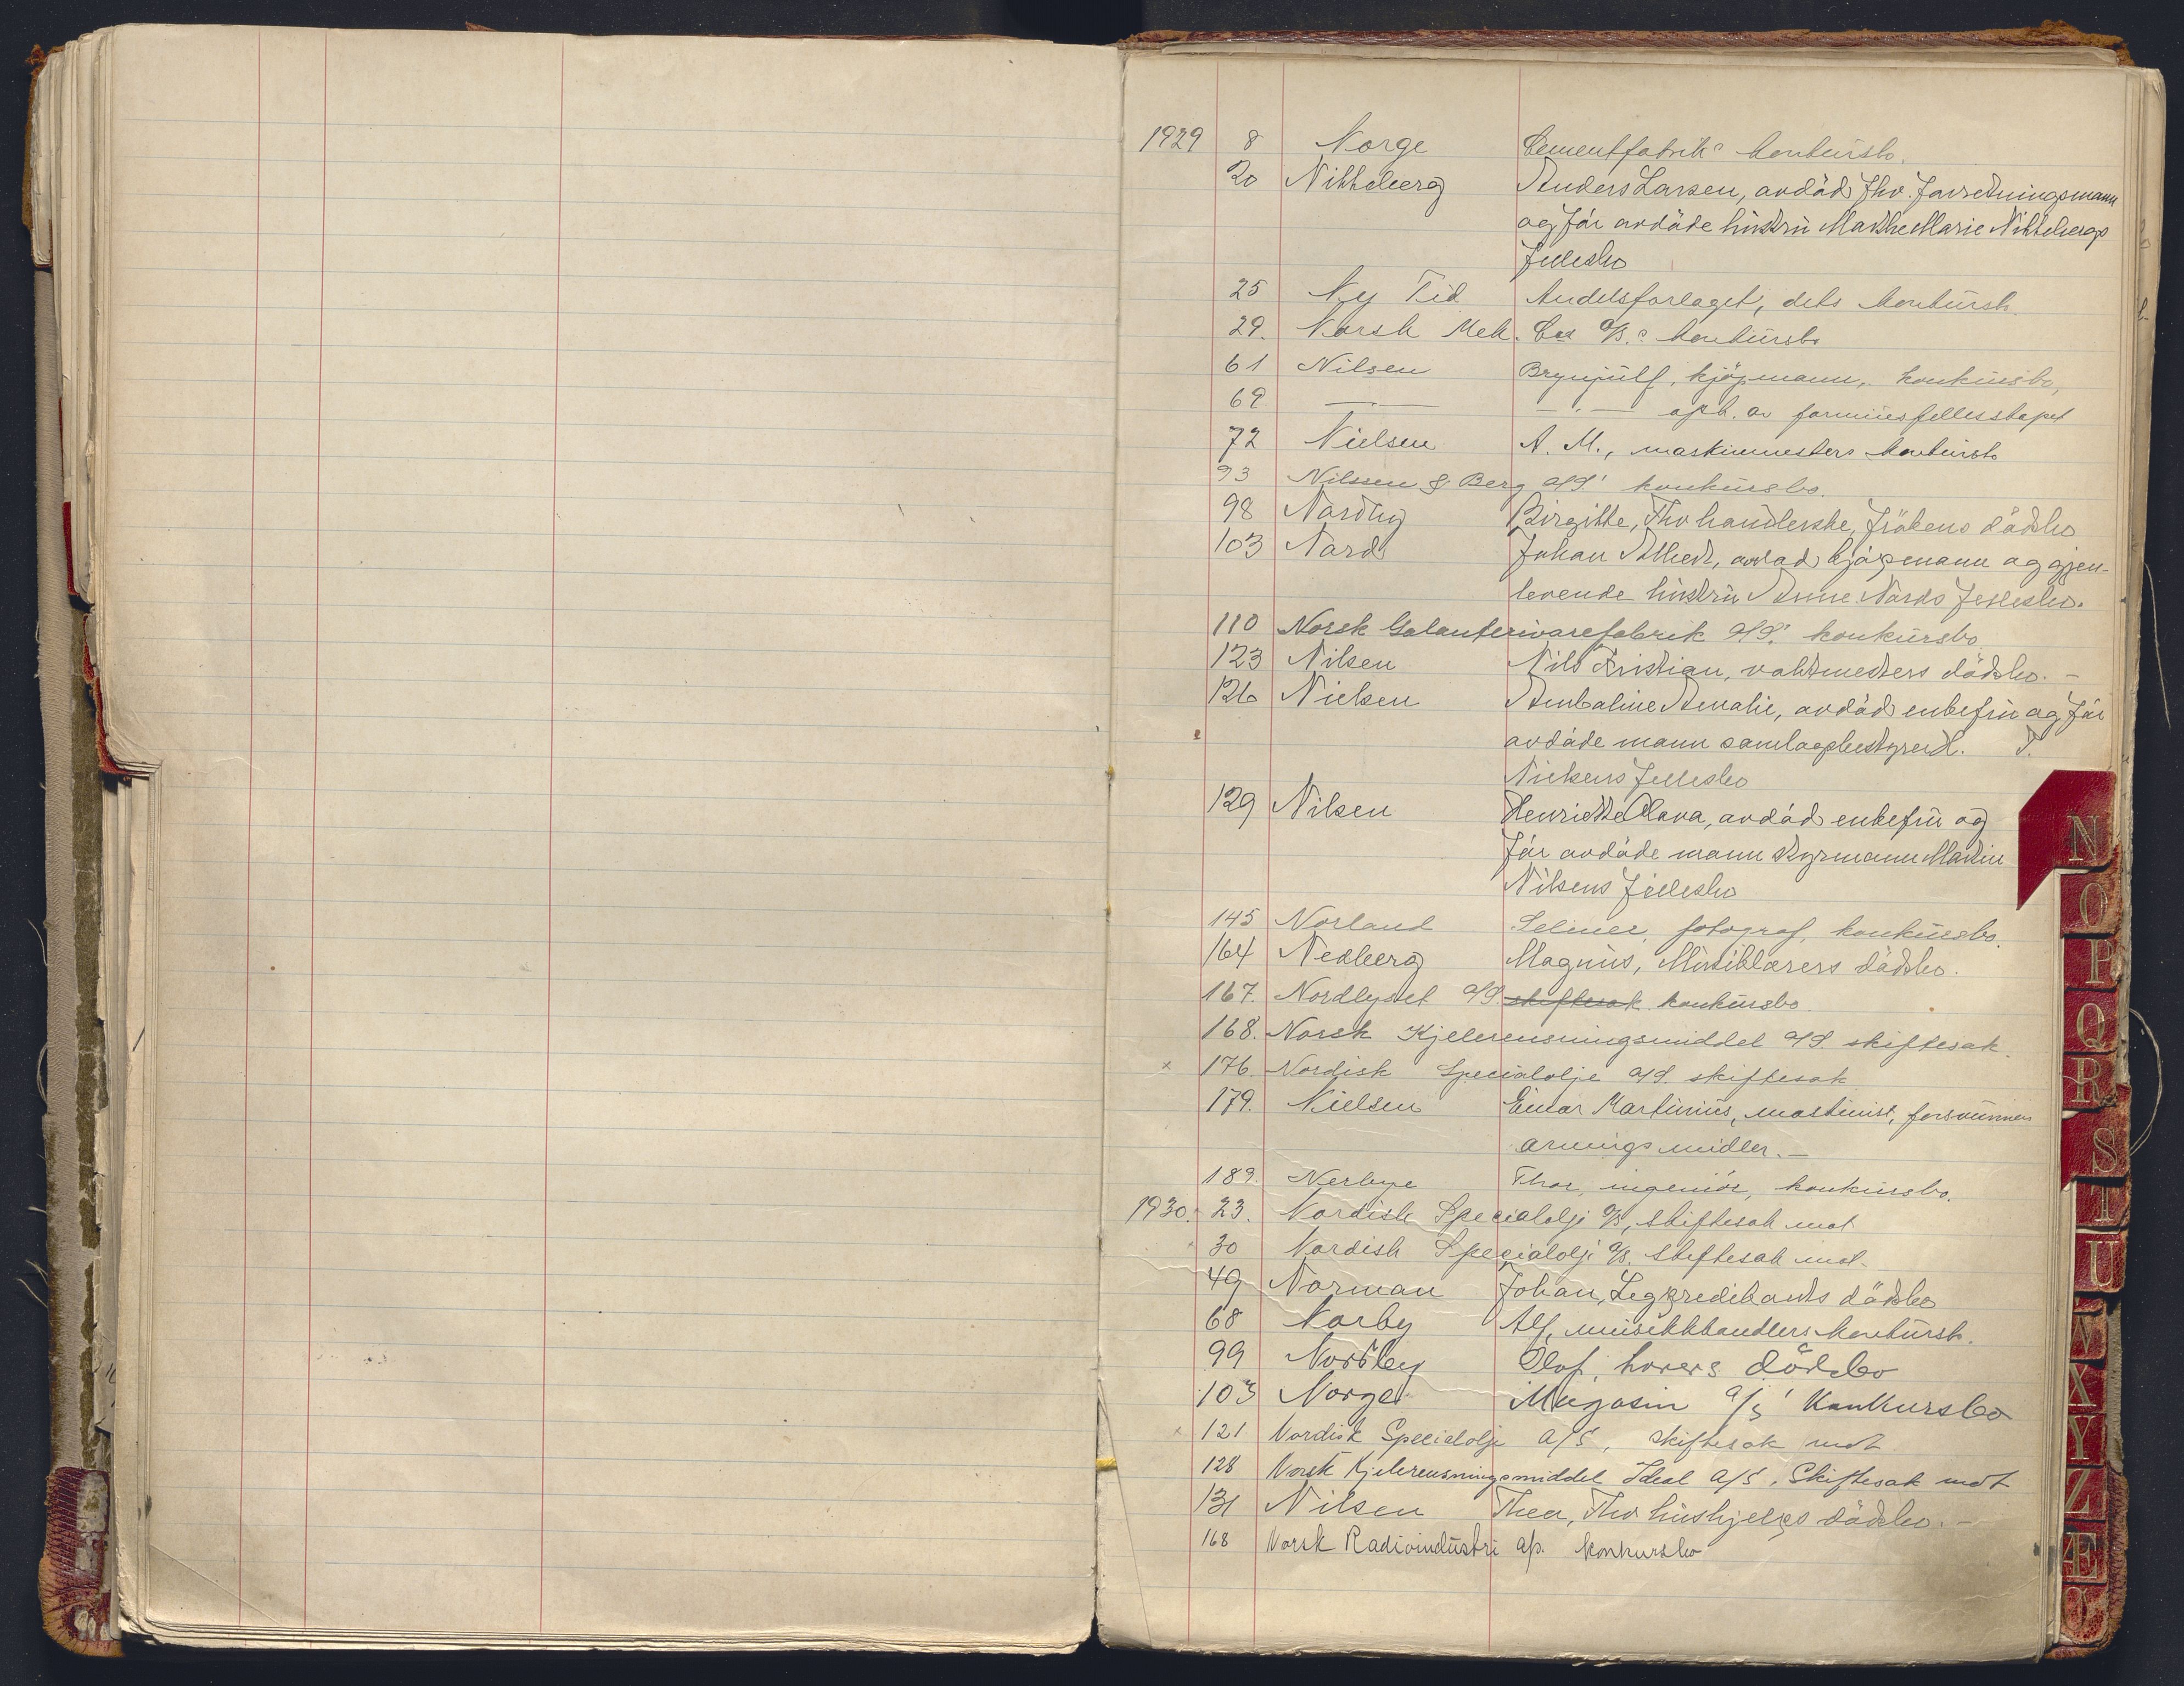 1929 8 Norge Cementfabriks konkursbo.
20 Nitteberg Anders Larsen, avdød fhv. forretningsmann
og før avdøde hustru Marthe Marie Nittebergs
fellesbo
25 Ny Tid Andelsforlaget, dets konkursb.
29. Norsk Mek. Co. A/S.s konkursbo
61 Nilsen Brynjulf, kjøpmann, konkursbo,
69 — . — — . — oph. av formuesfellesskapet
72 Nielsen A. M., maskinmesters konkursbo
93 Nilssen & Berg A/S' konkursbo.
98 Nordby Birgitte, Fhv handlerske, frøkens dødsbo
103 Nord Johan Albert, avdød kjøpmann og gjen-
levende hustru Anne Nords fellesbo.
110 Norsk Galanterivarefabrik A/S' konkursbo
123 Nilsen Nils Kristian, vaktmesters dødsbo. —
126 Nielsen Amalie, avdød enkefru og før
avdøde mann samlagsbestyrer
Nielsens fellesbo
129 Nilsen Henriette Olava, avdød enkefru og
før avdøde mann styrmann Martin
Nilsens fellesbo
145 Norland Selmer, fotograf, konkursbo.
164 Nedberg Magnus, Musiklærers dødsbo.
167. Nordlyset A/S. skiftesak konkursbo.
168. Norsk Kjelerensningsmiddel A/S. skiftesak.
x 176. Nordisk Specialolje A/S. skiftesak
179. Nielsen Einar Martinius, maskinist, forsvunnen
arvings midler. —
189. Nerbye Thor, ingeniør, konkursbo.
1930. 23. Nordisk Specialolje A/S, skiftesak mot
30 Nordisk Specialolje A/S. skiftesak mot.
49 Norman Johan, Legpredikants dødsbo
68 Norby Alf, musikkhandlers konkursb.
99 Nordby Olof, dødsbo
103 Norge Magasin A/S' Konkursbo
x 121 Nordisk Specialolje A/S, skiftesak mot
128 Norsk Kjelerensningsmiddel Ideal A/S, Skiftesak mot
131 Nilsen Thea, Fhv hushjelps dødsbo. —
168 Norsk Radioindustri A/S. konkursbo
N
O
P
Q
R
S
T
U
X
Y
Z
Æ
Ø